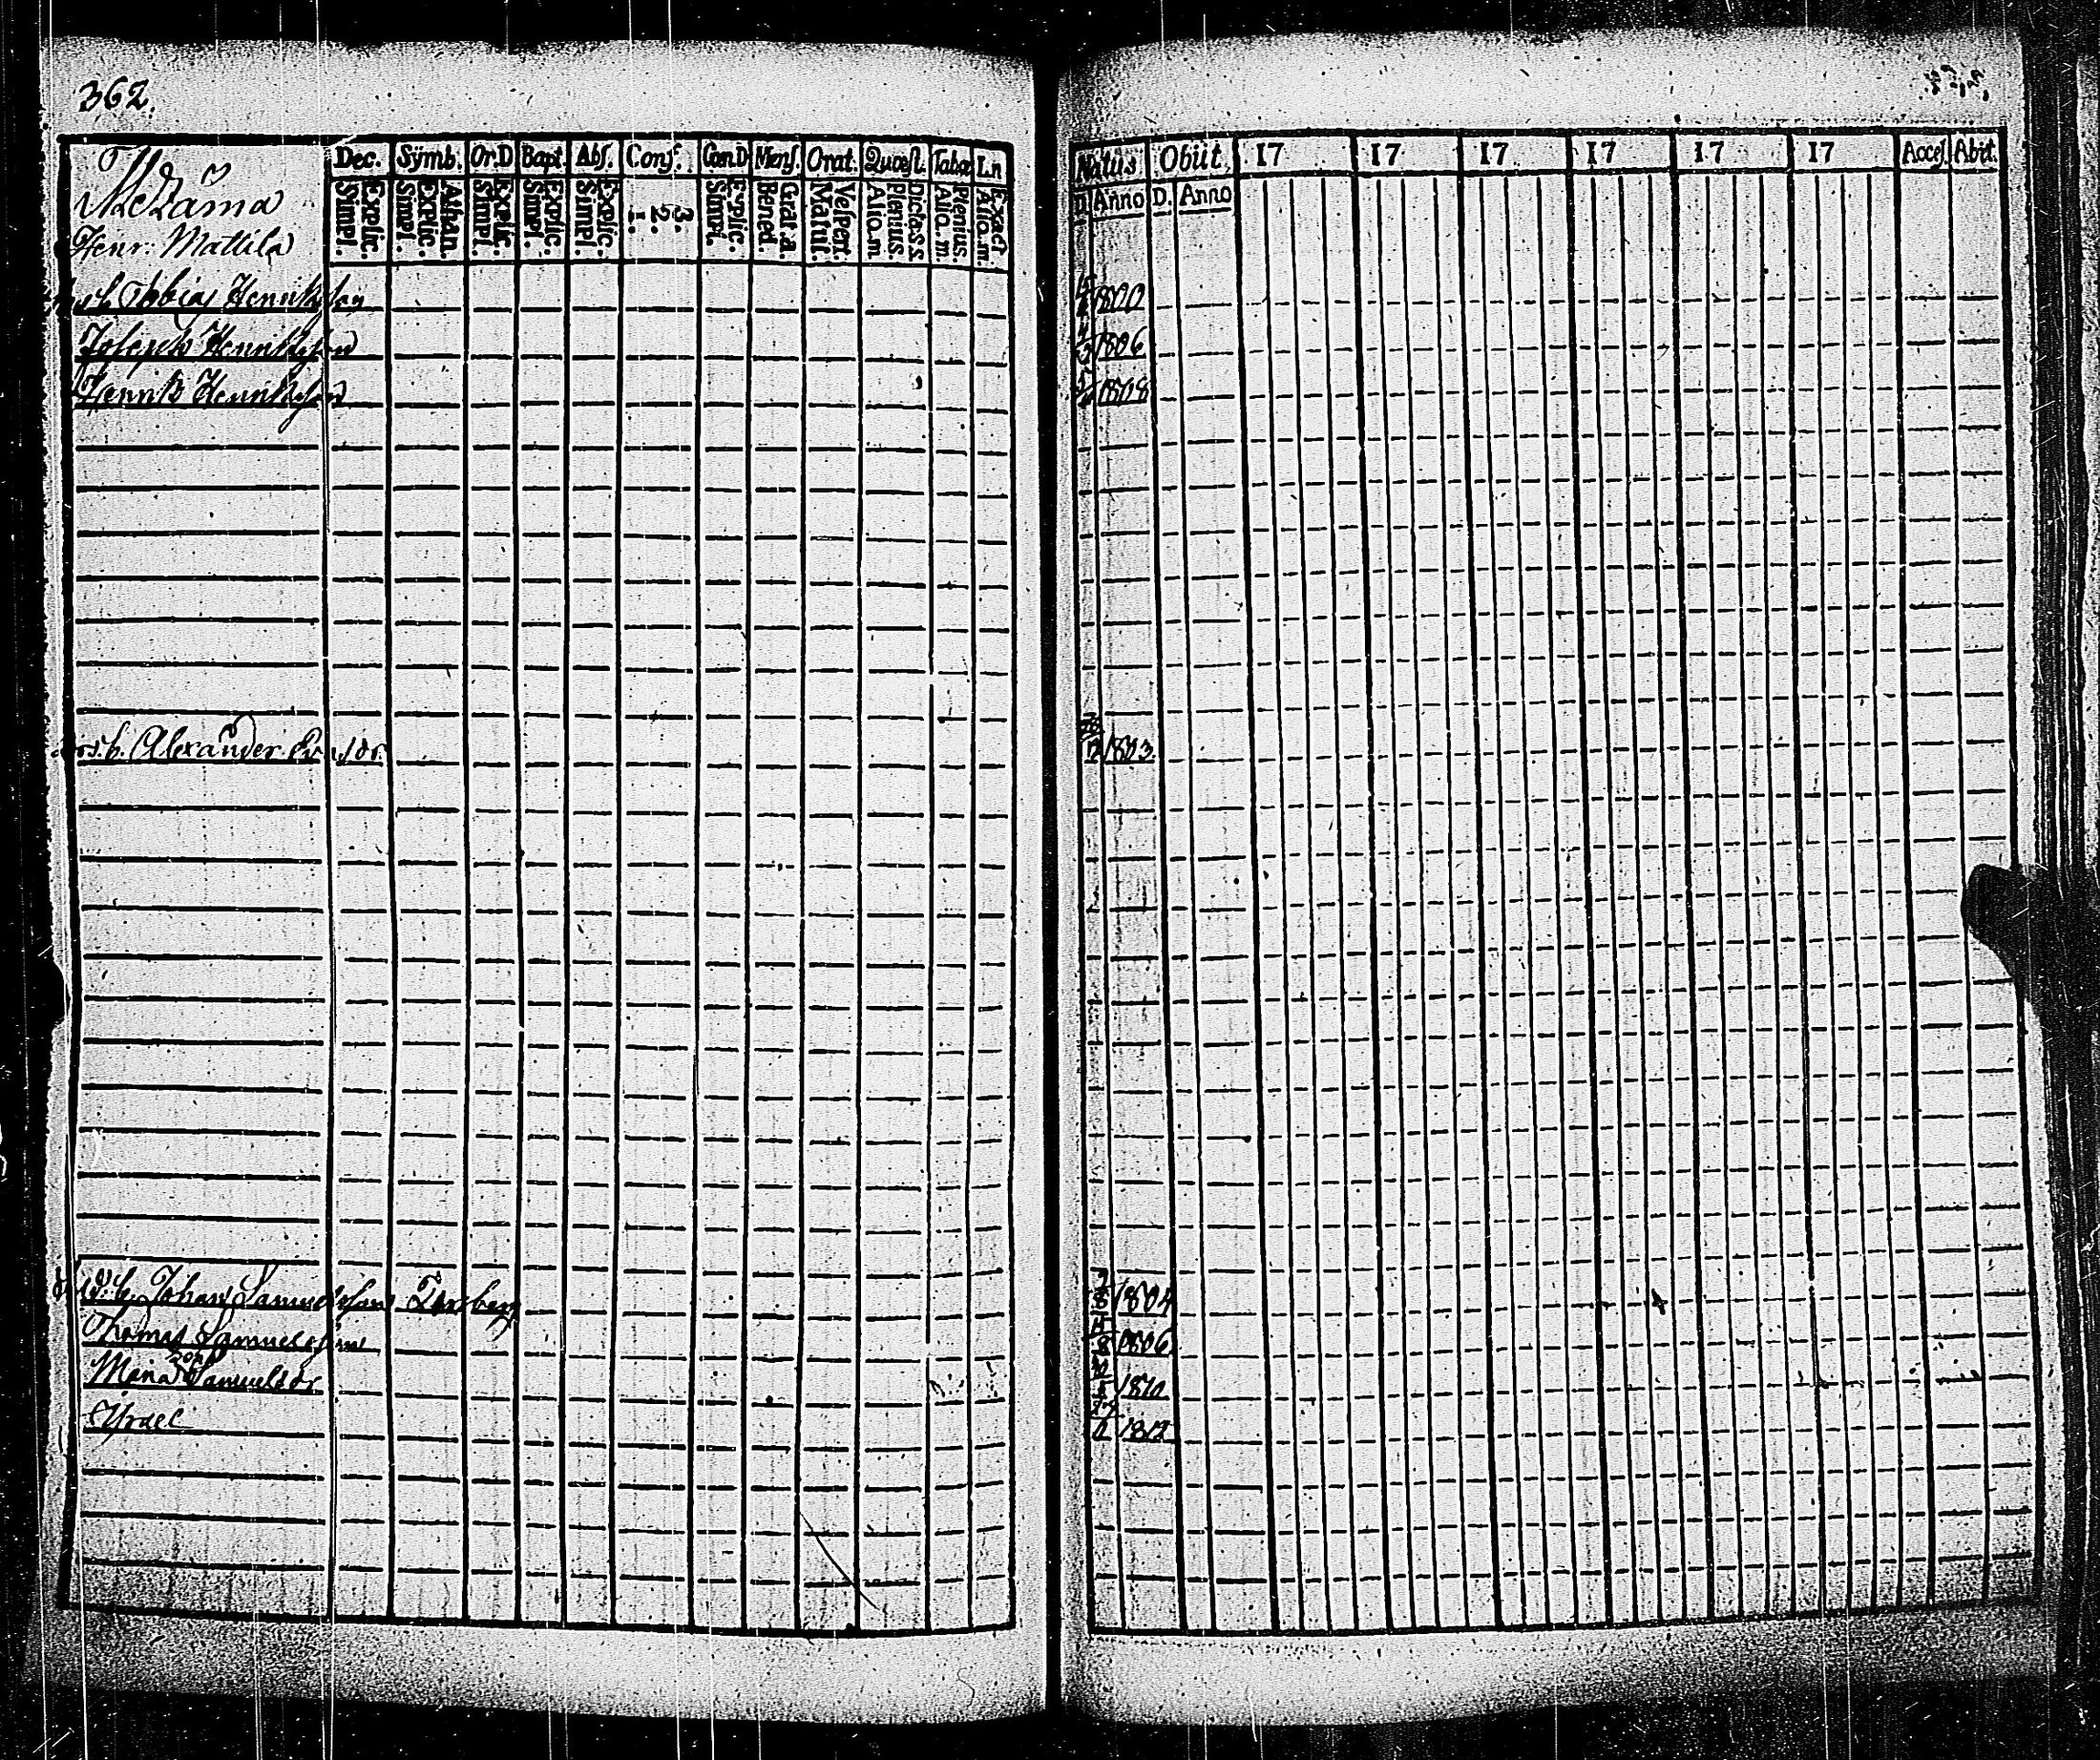 362.
Dec. Symb. Or.D Bapt. Abs. Conf. Can.D Mens. Orat. Quæst. Tabæ L.n
Simpl. Explic. Simpl. Explic. Athan. Simpl. Explic. Simpl. Explic. Simpl. Explic. 1. 2. 3. Simpl. Explic. Bened. Grat. a. Matut. Vespert. Alio. m. Plenius. Dict.s.s. Alio. m. Plenius. Alio. m. Exact
Henr: Mattila
Tobias Henriksson
Joseph Henriksson
Henrik Henriksson
s.b. Alexander
b. Johan Samuelsson
Thomas Samuelsson
Maria Samuelsdr
Israel
Natus Obiit. 17 17 17 17 17 17 Acces. Abit.
D. Anno D. Anno
1800
1806
1808
1803.
1804
1806
1810
1812